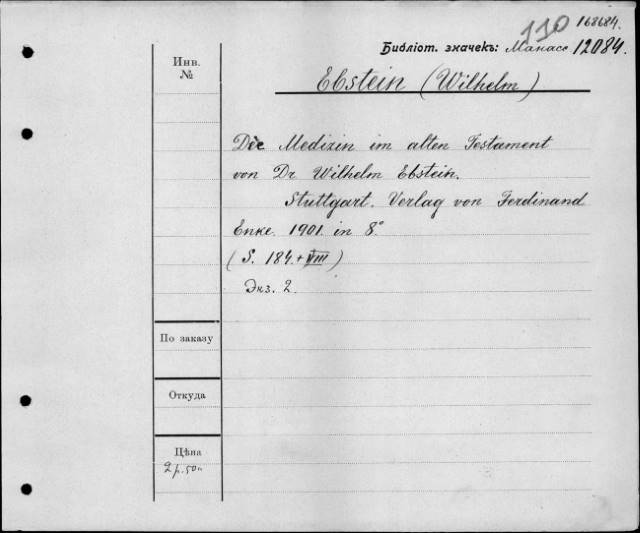 110 168684.
Библіот. значекъ: Манасс 12084.
Инв.
№
Ebstein (Wilhelm)
Die Medizin im alten Testament
von Dr Wilhelm Ebstein.
Stuttgart. Verlag von Ferdinand
Enke. 1901. in 8°
(S. 184 + VIII)
Экз. 2.
По заказу
Откуда
Цѣна
2 р. 50 к